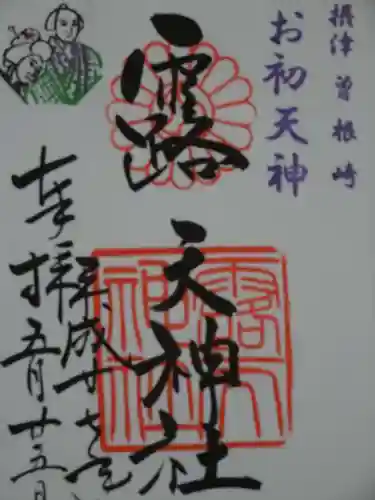 摂津 曽根崎
お初天神
露
天神社
奉拝
平成廿七年
五月廿五日